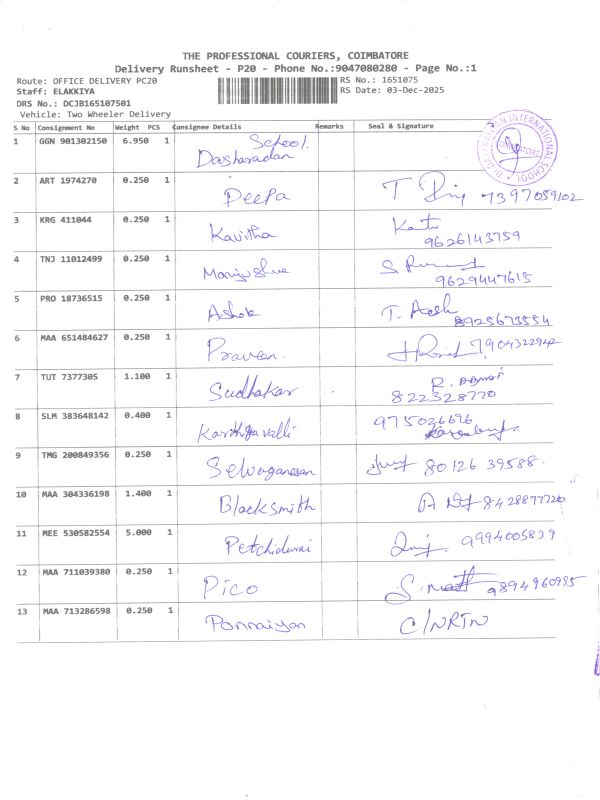 THE PROFESSIONAL COURIERS, COIMBATORE
Delivery Runsheet - P20 - Phone No.:9047080280 - Page No.:1
Route: OFFICE DELIVERY PC20
RS No.: 1651075
Staff: ELAKKIYA
RS Date: 03-Dec-2025
DRS No.: DCJB165107501
Vehicle: Two Wheeler Delivery
S No Consignment No Weight PCS Consignee Details Remarks Seal & Signature
1 GGN 901302150 6.950 1 School. Dasharadan
INTERNATIONAL SCHOOL
2 ART 1974270 0.250 1 Deepa 7397059102
3 KRG 411044 0.250 1 Kavitha 9626143759
4 TNJ 11012499 0.250 1 Manju shue 9629447615
5 PRO 18736515 0.250 1 Ashok 8925673554
6 MAA 651484627 0.250 1 Praveen. 7904322942
7 TUT 7377305 1.100 1 Sudhakar 822328770
8 SLM 383648142 0.400 1 Karthigavalli 975026696
9 TMG 200849356 0.250 1 Selvaganesan 80126 39588.
10 MAA 304336198 1.400 1 Blacksmith 8428877720
11 MEE 530582554 5.000 1 Petchidurai 9994005839
12 MAA 711039380 0.250 1 Pico 9894960995
13 MAA 713286598 0.250 1 Ponnaiyan C/NRTN